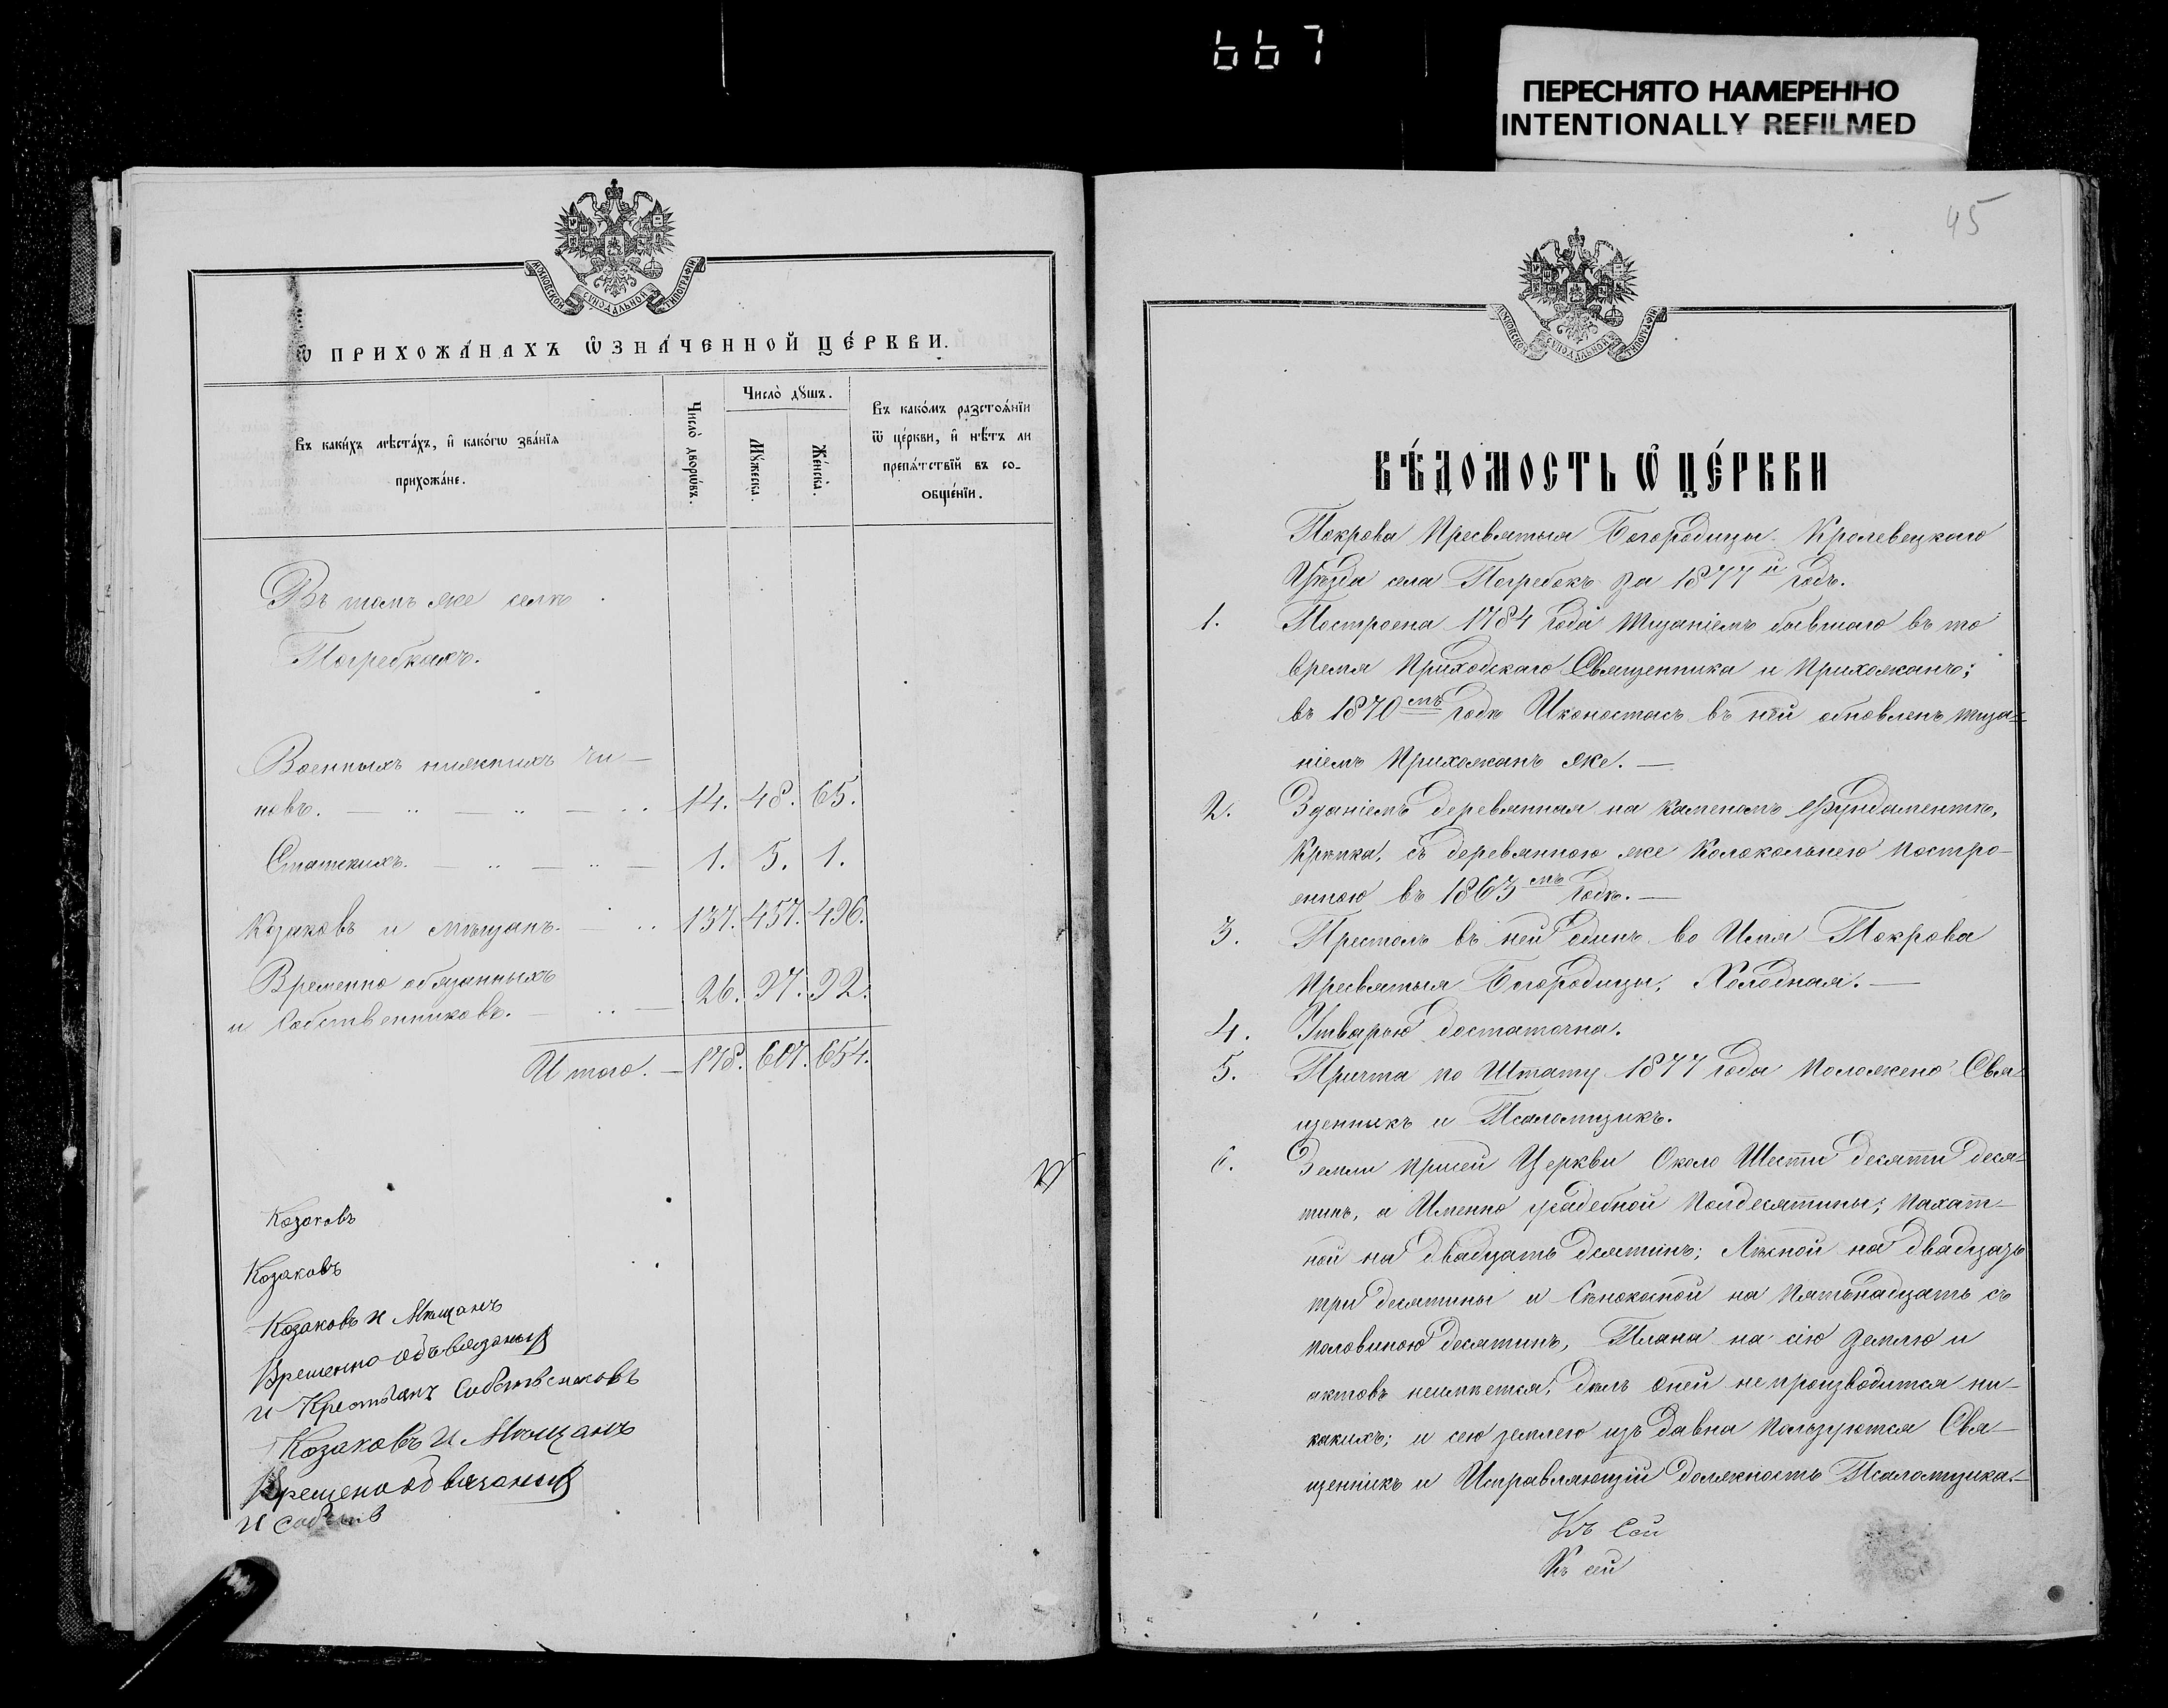 667
ПЕРЕСНЯТО НАМЕРЕННО
INTENTIONALLY REFILMED
МОСКОВСКОЙ СѴНОДАЛЬНОЙ ТИПОГРАФІИ
Ѡ ПРИХОЖА́НАХЪ Ѡ҆ЗНА́ЧЕННОЙ ЦЕ́РКВИ.
Въ каки́хъ мѣста́хъ, и҆ како́гѡ зва́нїѧ
прихожа́не.
Число̀ дворѡ́въ.
Число̀ дꙋшъ.
Мꙋ́жеска.
Же́нска.
Въ како́мъ разстоѧ́нїи
ѿ це́ркви, и҆ нѣ́тъ ли
препѧ́тствїй въ со-
общє́нїи.
Въ томъ же селѣ
Погребкахъ.
Военныхъ нижнихъ чи-
новъ. — „ — „ — „ 14. 48. 65.
Статскихъ. — „ — „ — 1. 5. 1.
Козаковъ и мѣщанъ. — „ 137. 457. 496.
Временно обязанныхъ
и собственниковъ. — „ — 26. 97. 92.
Итого. — 178. 607. 654.
Козаковъ
Козаковъ
Козаковъ и Мѣщанъ
Временно-обовязаныя
и Крестьянъ Собствениковъ
Козаковъ и Мѣщанъ
Времено обвязаныя
и
45
МОСКОВСКОЙ СѴНОДАЛЬНОЙ ТИПОГРАФІИ
ВѢ́ДОМОСТЬ Ѡ҆ ЦЕ́РКВИ
Покрова Пресвятыя Богородицы Кролевецкаго
Уѣзда села Погребокъ за 1877й годъ.
1. Построена 1784 года тщаніемъ бывшаго въ то
время Приходскаго Священника и Прихожанъ;
въ 1870мъ годѣ Иконостасъ въ ней обновленъ тща-
ніемъ Прихожанъ же. —
2. Зданіемъ деревянная на каменомъ фундаментѣ,
Крѣпка, съ деревянною же Колокольнею постро-
енною въ 1863мъ годѣ. —
3. Престолъ въ ней единъ во Имя Покрова
Пресвятыя Богородицы, Холодная. —
4. Утварью достаточна.
5. Причта по Штату 1877 года положено Свя
щенникъ и Псаломщикъ.
6. Земли присей Церкви Около Шести десяти деся-
тинъ, а Именно усадебной Полдесятины; пахат-
ной на двадцать десятинъ; Лѣсной на двадцать
три десятины и Сѣнокосной на Пятьнадцать съ
половиною десятинъ, Плана на сію землю и
актовъ неимѣется, дѣлъ оней не производится ни-
какихъ; и сею землею изъ давна Пользуются Свя-
щенникъ и Исправляющій должность Псаломщика. —
Къ Сей
Къ сей